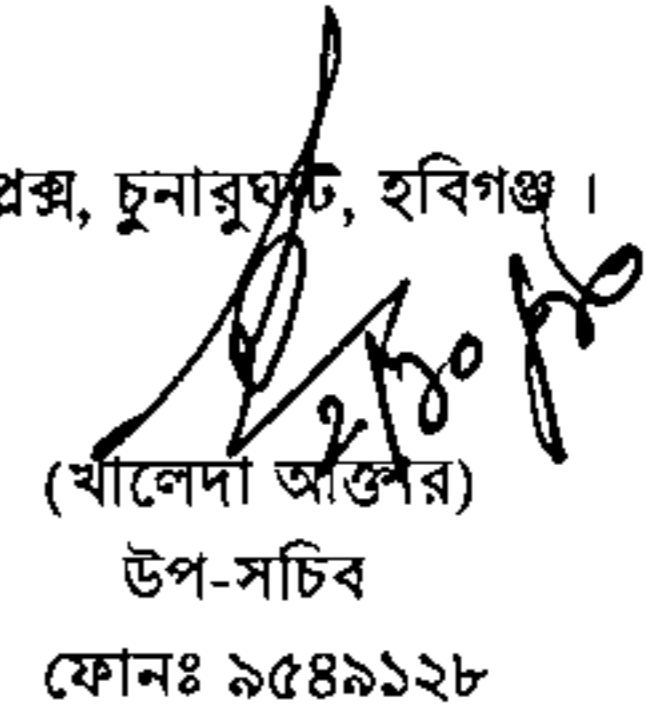 প্লেক্স, চুনারুঘাট, হবিগঞ্জ ।
(খালেদা আক্তার)
উপ-সচিব
ফোনঃ ৯৫৪৯১২৮